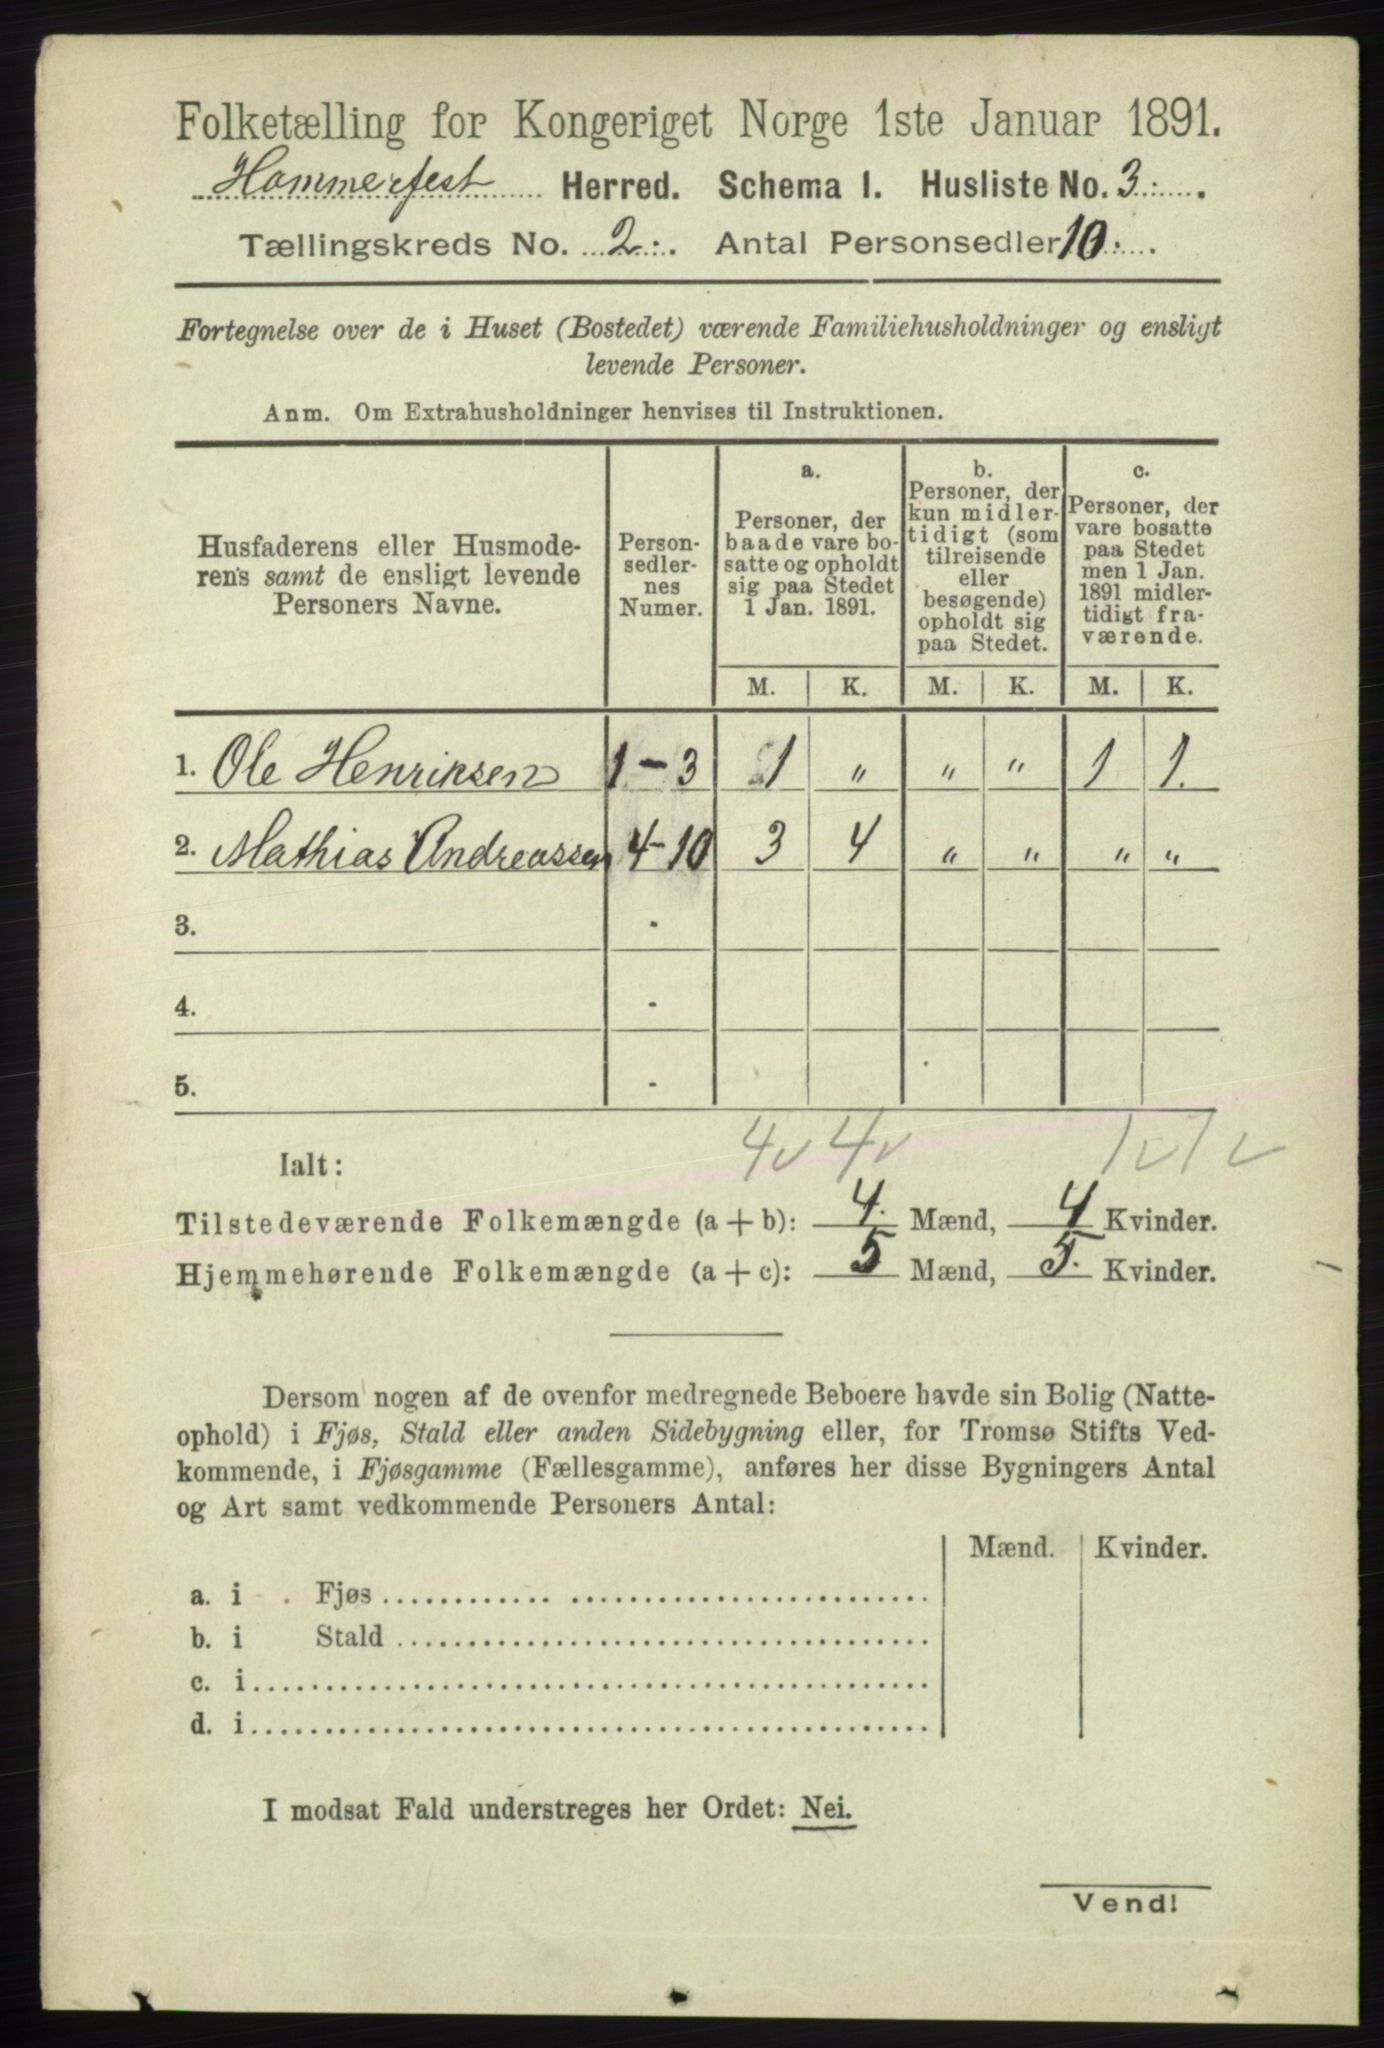 Folketælling for Kongeriget Norge 1ste Januar 1891.
Hammerfest Herred. Schema I. Husliste No. 3.
Tællingskreds No. 2. Antal Personsedler 10.
Fortegnelse over de i Huset (Bostedet) værende Familiehusholdninger og ensligt
levende Personer.
Anm. Om Extrahusholdninger henvises til Instruktionen.
Husfaderens eller Husmode-
rens samt de ensligt levende
Personers Navne.
Person-
sedler-
nes
Numer.
a.
Personer, der
baade vare bo-
satte og opholdt
sig paa Stedet
1 Jan. 1891.
b.
Personer, der
kun midler-
tidigt (som
tilreisende
eller
besøgende)
opholdt sig
paa Stedet.
c.
Personer, der
vare bosatte
paa Stedet
men 1 Jan.
1891 midler-
tidigt fra-
værende.
M. K. M. K. M. K.
1. Ole Henriksen 1 - 3 1 " " " 1 1.
2. Mathias Andreassen 4-10 3 4 " " " "
3. -
4. -
5. -
4v 4v 1v 1v
Ialt:
Tilstedeværende Folkemængde (a + b): 4. Mænd, 4 Kvinder.
Hjemmehørende Folkemængde (a + c): 5 Mænd, 5. Kvinder.
Dersom nogen af de ovenfor medregnede Beboere havde sin Bolig (Natte-
ophold) i Fjøs, Stald eller anden Sidebygning eller, for Tromsø Stifts Ved-
kommende, i Fjøsgamme (Fællesgamme), anføres her disse Bygningers Antal
og Art samt vedkommende Personers Antal:
Mænd. Kvinder.
a. i Fjøs
b. i Stald
c. i
d. i
I modsat Fald understreges her Ordet: Nei.
Vend!